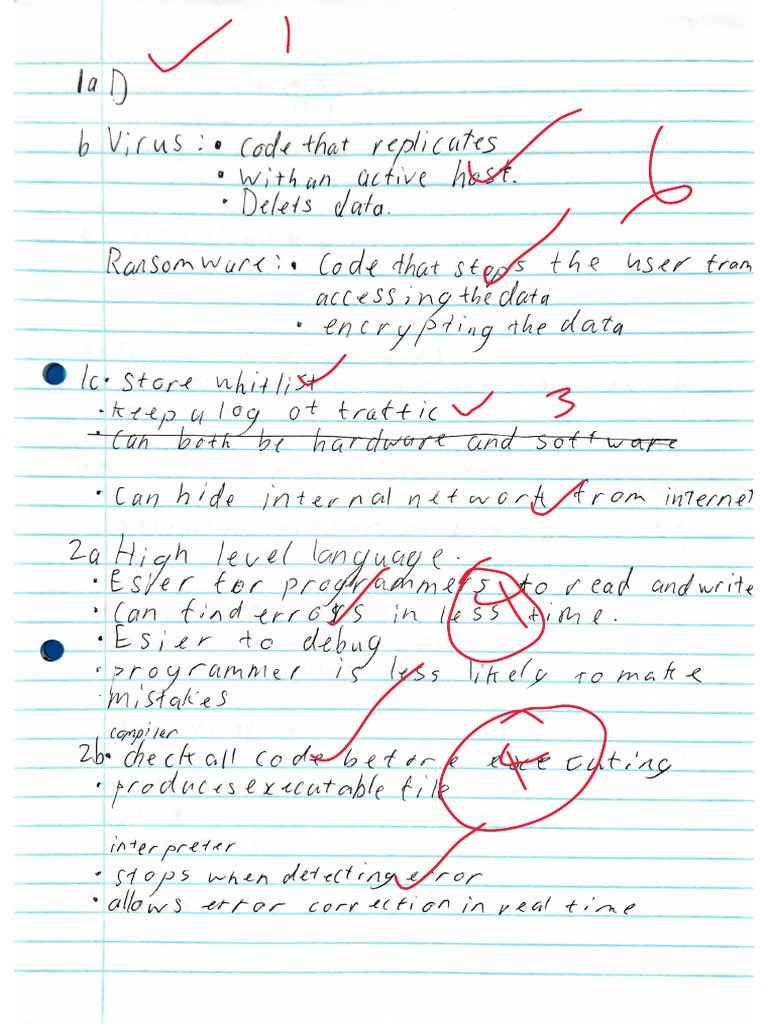 1
1a D
b Virus: • Code that replicates
• With an active host.
• Delets data.
6
Ransomware: • Code that stops the user from
accessing the data
• encrypting the data
1c • Store whitlist
• keep a log of traffic
3
• Can both be hardware and software
• Can hide internal network from internet
2a High level language.
• Esier for programmers to read and write
• Can find errors in less time.
4
• Esier to debug
• programmer is less likely to make
mistakes
compiler
2b • check all code before cuting
4
• produces executable file
interpreter
• stops when detecting error
• allows error correction in real time